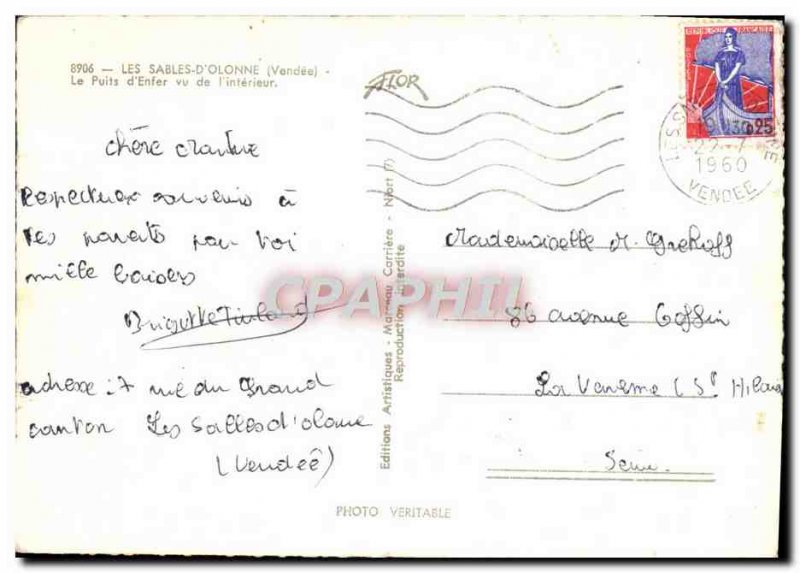 8906 — LES SABLES-D'OLONNE (Vendée) -
Le Puits d'Enfer vu de l'intérieur.
FLOR
REPUBLIQUE FRANCAISE
0,25
1960
VENDEE
chère
Respectueux souvenirs à
tes parents pour toi
mille baisers
Brigitte
adresse : 7 rue du Grand
canton Les Salles d'olonne
(Vendeê)
Editions Artistiques - Marceau Carrière - Niort (7)
Reproduction interdite
Mademoiselle M.
86 avenue Coffin
La Varenne (St Hilaire
Seine.
PHOTO VERITABLE
CPAPHIL